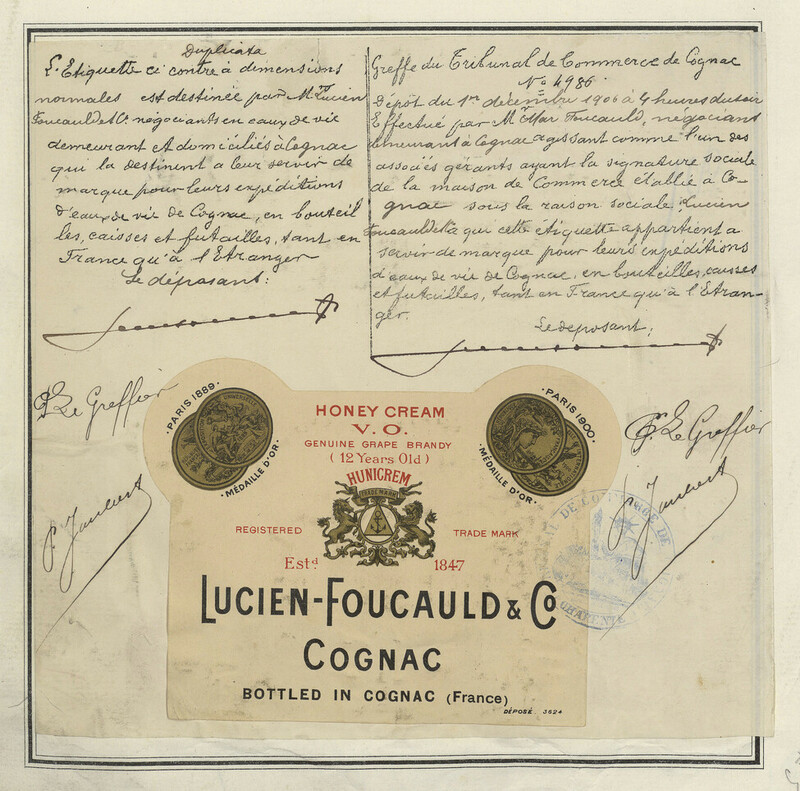 Duplicata
L'Etiquette ci contre à dimensions
normales est destinée par M. Lucien
Foucauld et Co négociants en eaux de vie
demeurant et domiciliés à Cognac
qui la destinent a leur servir de
marque pour leurs expéditions
d'eaux de vie de Cognac, en bouteil
les, caisses et futailles, tant en
France qu'à l'Etranger
Le déposant:
Greffe du Tribunal de Commerce de Cognac
No 4986
Dépôt du 1er décembre 1906 à 4 heures du soir
Effectué par M. Foucauld, négociant
demeurant à Cognac agissant comme l'un des
associés gérants ayant la signature sociale
de la maison de Commerce établie à Co-
gnac sous la raison sociale Lucien
Foucauld et Co qui cette étiquette appartient a
servir de marque pour leurs expéditions
d'eaux de vie de Cognac, en bouteilles, caisses
et futailles, tant en France qu'à l'Etran-
ger.
Le déposant:
Le Greffier
P. Jaubert
Le Greffier
P. Jaubert
PARIS 1889.
MÉDAILLE D'OR
PARIS 1900.
MÉDAILLE D'OR
HONEY CREAM
V.O.
GENUINE GRAPE BRANDY
(12 Years Old)
HUNICREM
TRADE MARK
REGISTERED TRADE MARK
Estd 1847
LUCIEN-FOUCAULD & Co
COGNAC
BOTTLED IN COGNAC (France)
DÉPOSÉ. 3524